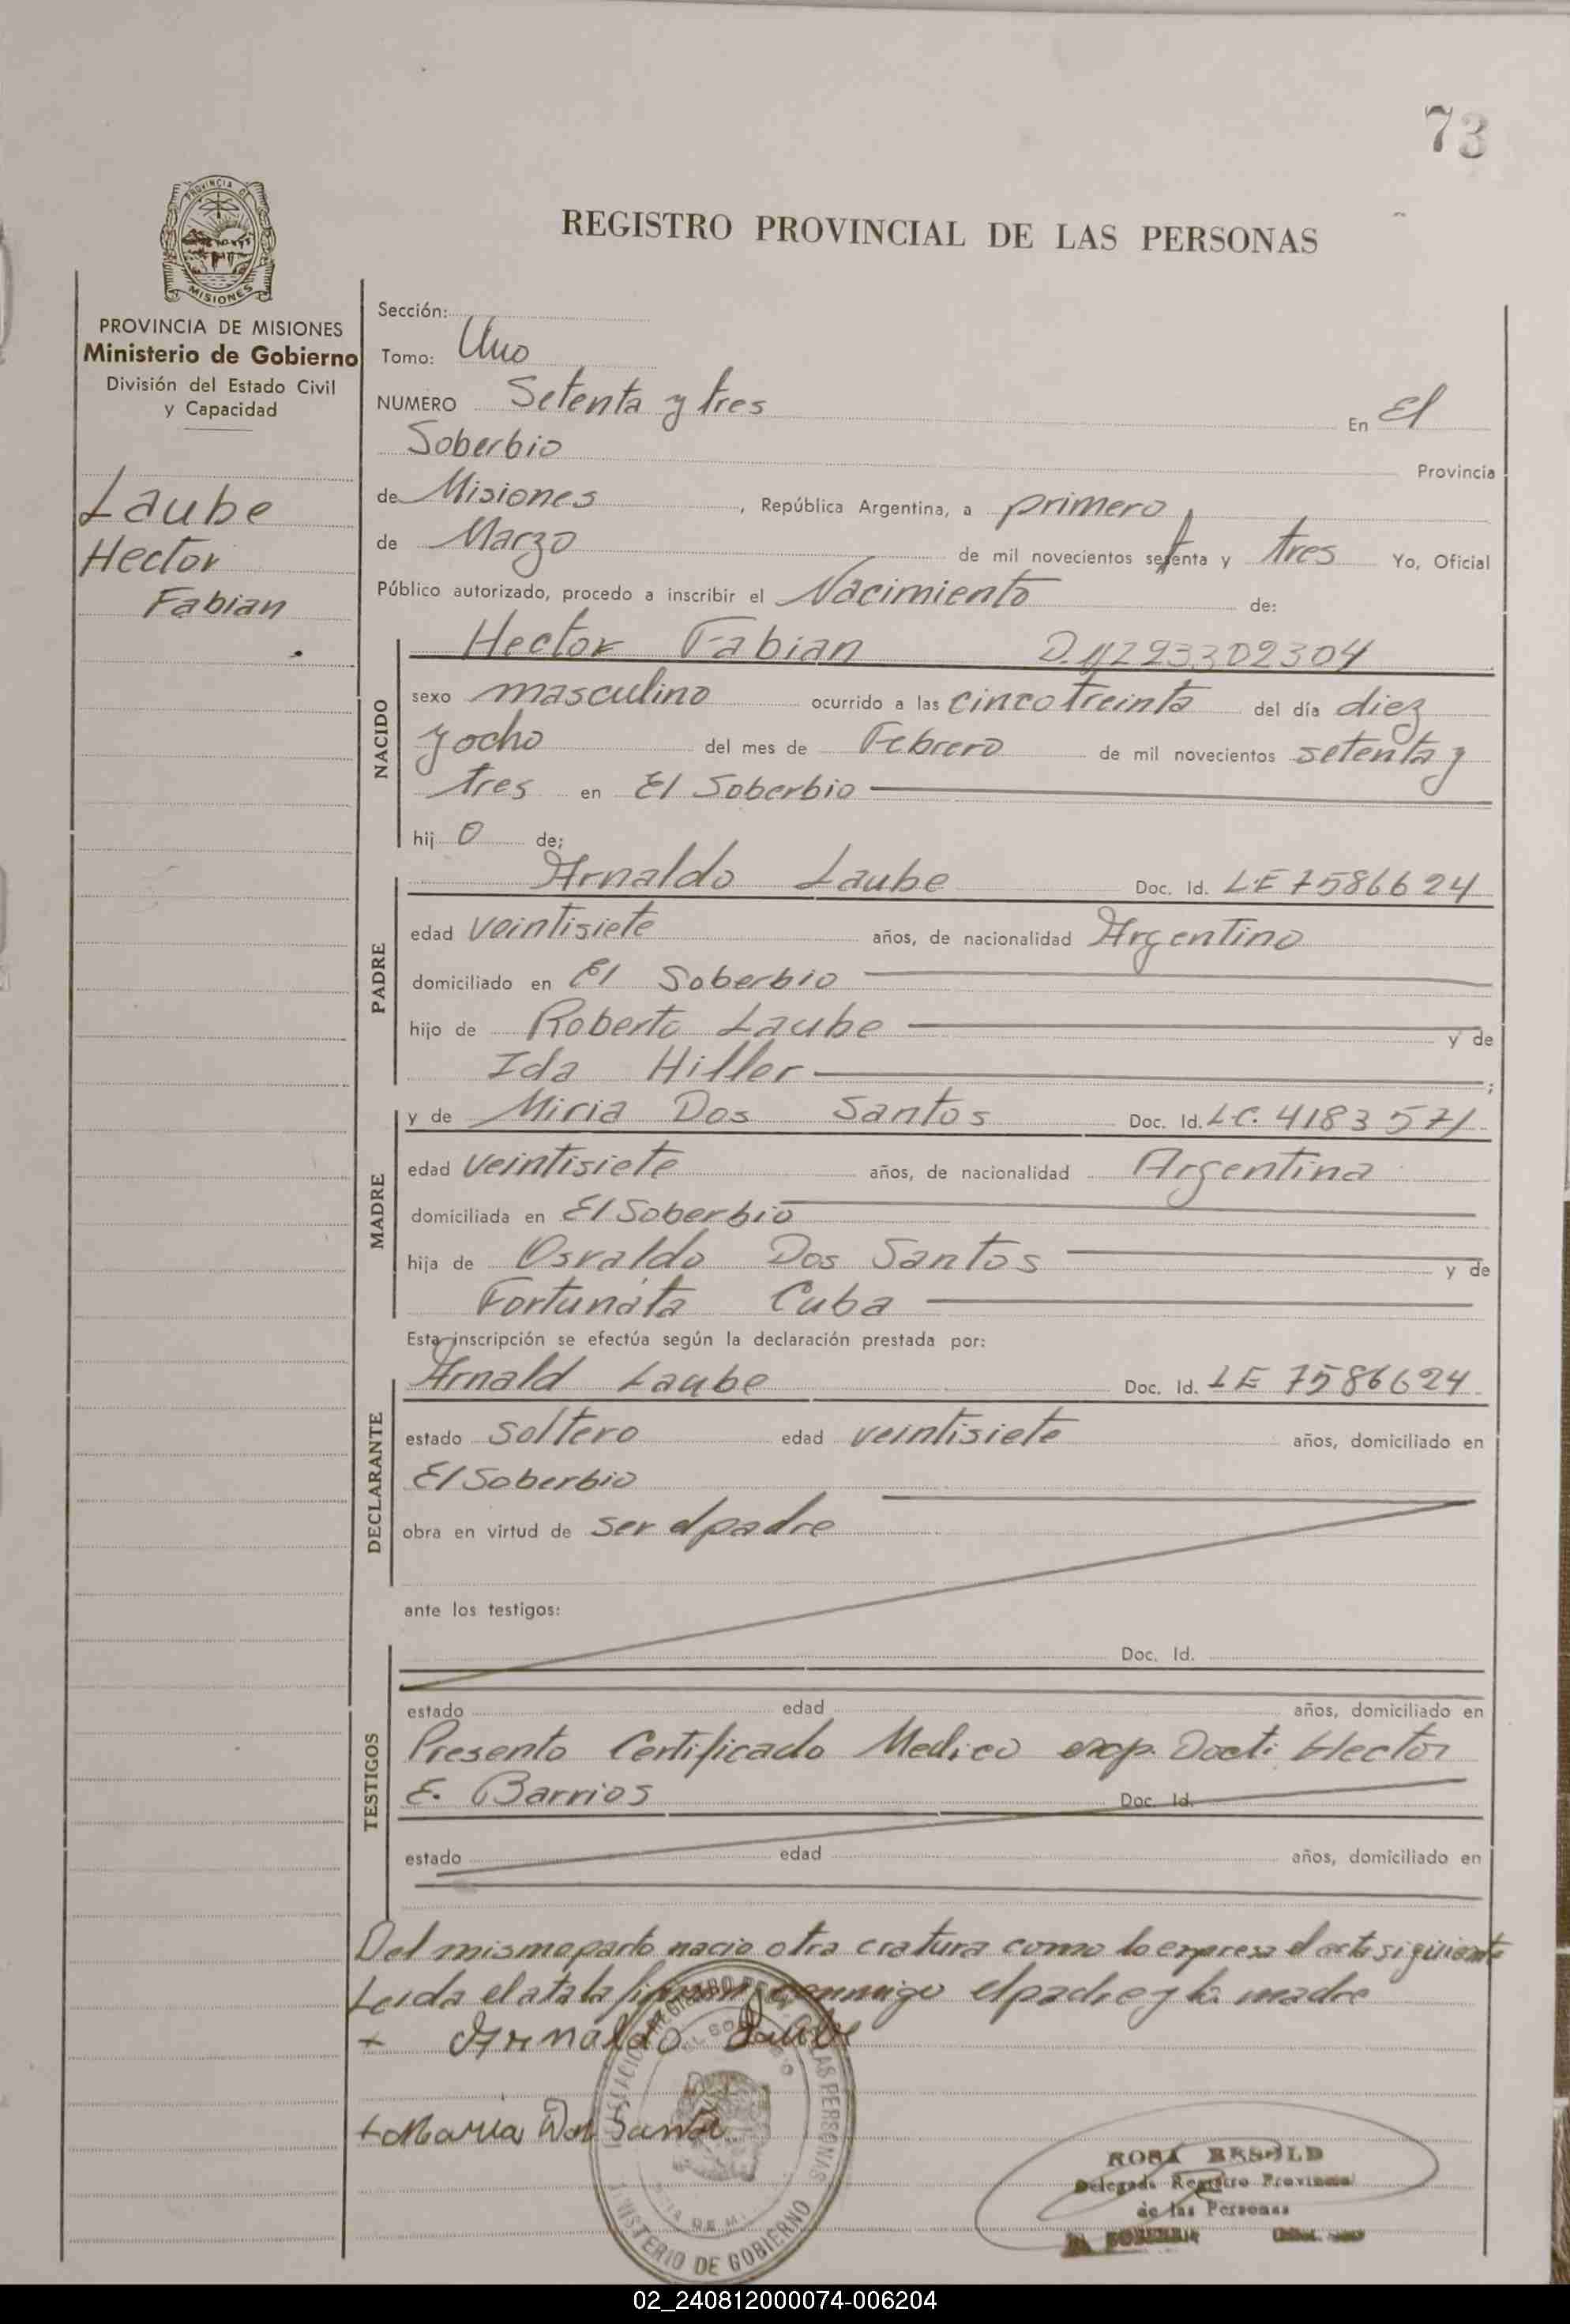 73
PROVINCIA DE
MISIONES
REGISTRO PROVINCIAL DE LAS PERSONAS
PROVINCIA DE MISIONES
Ministerio de Gobierno
División del Estado Civil
y Capacidad
Laube
Hector
Fabian
Sección:
Tomo: Uno
NUMERO Setenta y tres En El
Soberbio Provincia
de Misiones, República Argentina, a primero
de Marzo de mil novecientos setenta y tres Yo, Oficial
Público autorizado, procedo a inscribir el Nacimiento de:
Hector Fabian 23.302304
NACIDO
sexo masculino ocurrido a las cinco treinta del día diez
y ocho del mes de Febrero de mil novecientos setenta y
tres en El Soberbio
hij o de;
PADRE
Arnaldo Laube Doc. Id. LE 7586624
edad veintisiete años, de nacionalidad Argentino
domiciliado en El Soberbio
hijo de Roberto Laube y de
Ida Hiller;
MADRE
y de Miria Dos Santos Doc. Id. LC. 4183571
edad veintisiete años, de nacionalidad Argentina
domiciliada en El Soberbio
hija de Osvaldo Dos Santos y de
Fortunata Cuba
Esta inscripción se efectúa según la declaración prestada por:
DECLARANTE
Arnald Laube Doc. Id. LE 7586624
estado soltero edad veintisiete años, domiciliado en
El Soberbio
obra en virtud de ser el padre
ante los testigos:
TESTIGOS
Doc. Id.
estado edad años, domiciliado en
Presento Certificado Medico exp. Doct: Hector
E. Barrios Doc. Id.
estado edad años, domiciliado en
Del mismo parto nacio otra cratura como lo expresa el acta siguiente
Leida el ata la firman conmigo el padre y la madre
+ Arnaldo Laube
+ Maria Dos Santos
MINISTERIO DE GOBIERNO
ROSA BESOLD
Delegada Registro Provincial
de las Personas
EL SOBERBIO
02_240812000074-006204